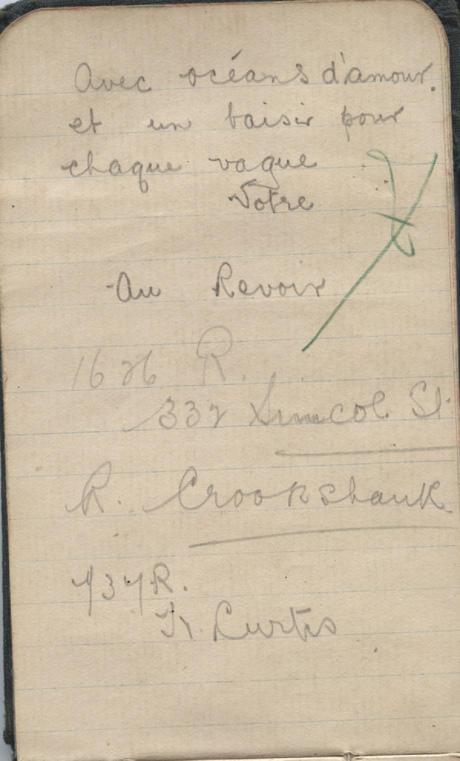 Avec océans d'amour.
et un baisir pour
chaque vague
Votre
Au Revoir
1626 R.
332 Simcol St.
R. Crookshank
737R.
Curtis